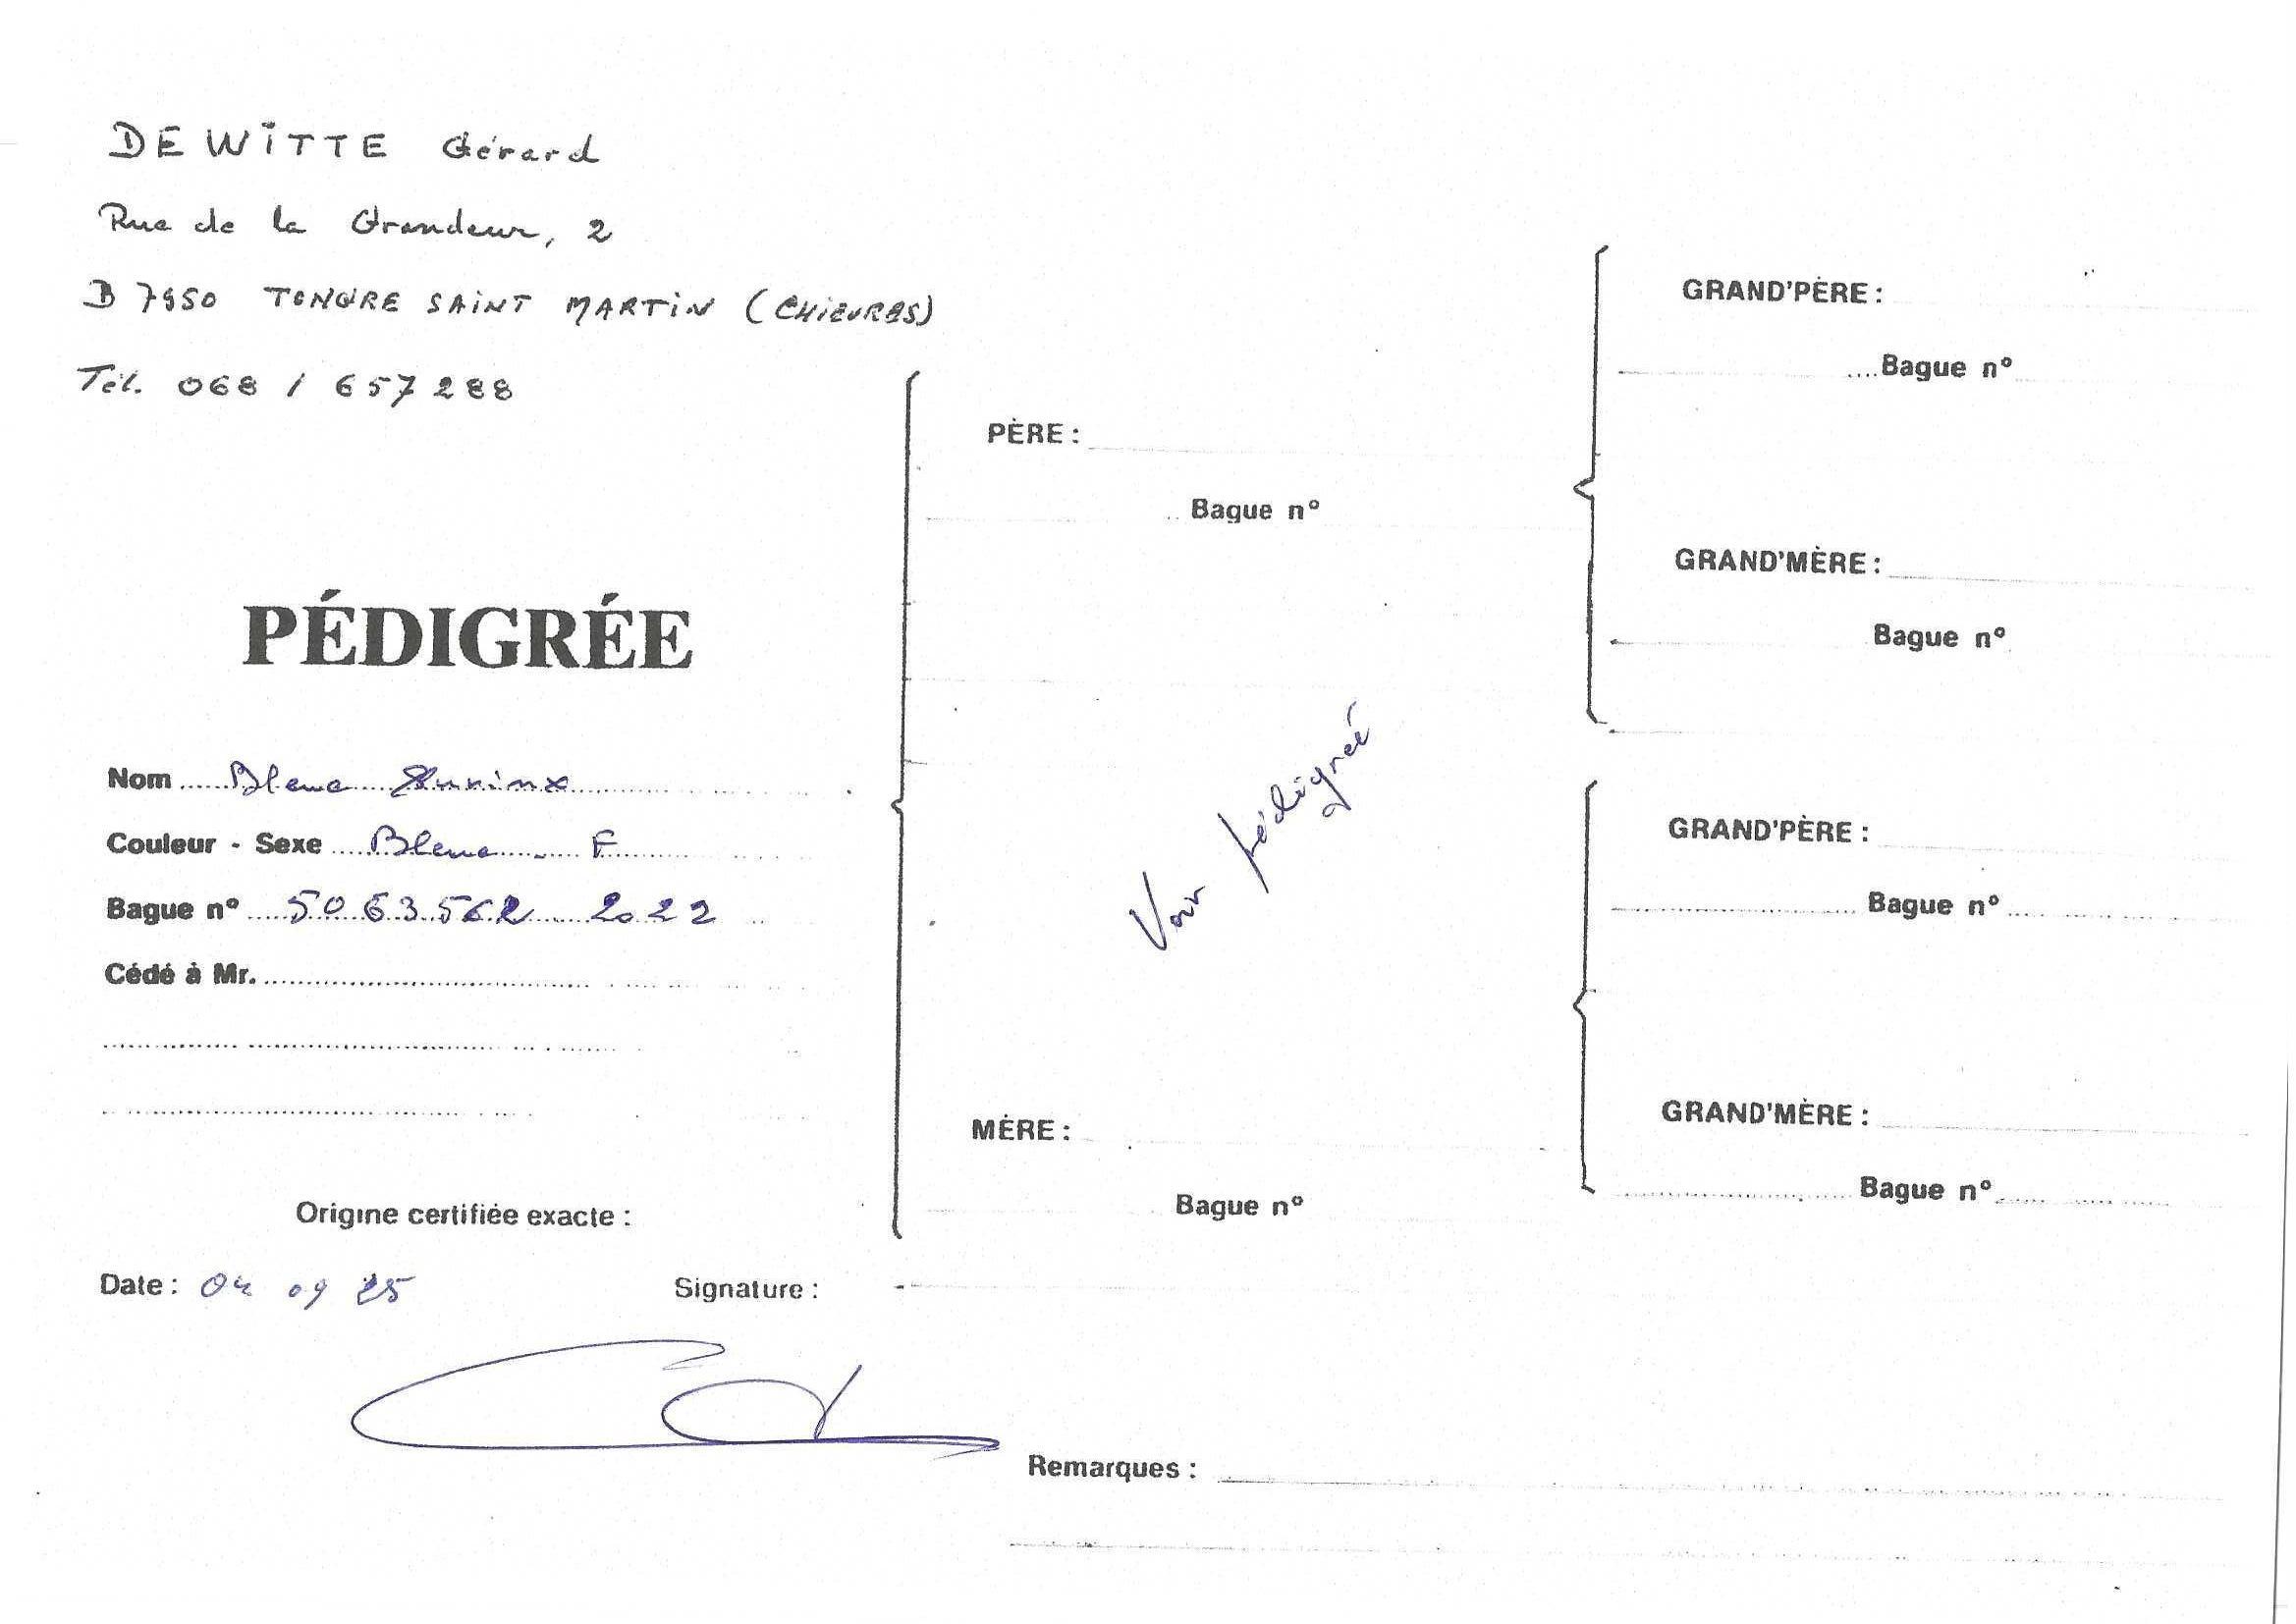 DEWITTE Gérard
Rue de la Grandeur, 2
B 7950 TONGRE SAINT MARTIN (CHIEVRES)
Tél. 068 / 657288
PÉDIGRÉE
Nom Bleue
Couleur - Sexe Bleue - F
Bague n° 5063562 2022
Cédé à Mr.
Origine certifiée exacte :
Date : 04 09 25
Signature :
PÈRE :
Bague n°
Voir pédigréé
MÈRE :
Bague n°
GRAND'PÈRE :
Bague n°
GRAND'MÈRE :
Bague n°
GRAND'PÈRE :
Bague n°
GRAND'MÈRE :
Bague n°
Remarques :